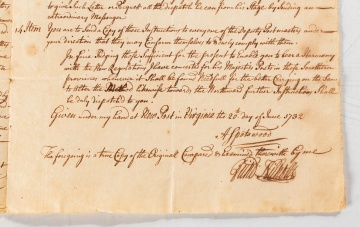 any single Letter or Pacquet at the Dispatch be can from his Stage by sending an
extraordinary Messenger
14 Item You are to Send a Copy of these Instructions to every of the Deputy Post masters under
your direction that they may Conform themselves & Duely comply with them:
So farr Judging these Sufficient for the present to Enable you to bear a Harmony
with the New Regulations I have concerted for his Majestys Post in these Southern
provinces whenever it Shall be found Needfull for the better Carrying on the Same
to Alter the Method Likewise towards the Northward further Instructions Shall
be duly dispatched to you.
Given under my hand at New Post in Virginia the 20 day of June 1732
A Spotswood
The foregoing is a true Copy of the Original Compared & Examined therewith by me